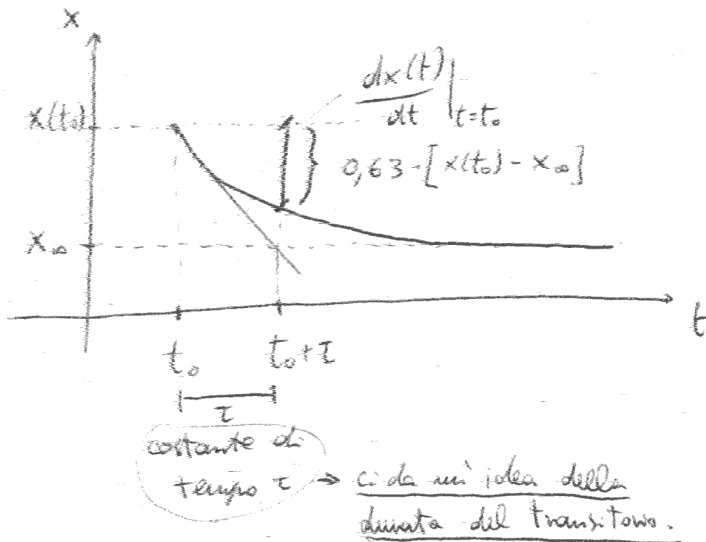 x
x(t₀)
dx(t)/dt |t=t₀
0,63 · [x(t₀) - x∞]
x∞
t
t₀
t₀+τ
τ
costante di
tempo τ → ci da un'idea della
durata del transitorio.